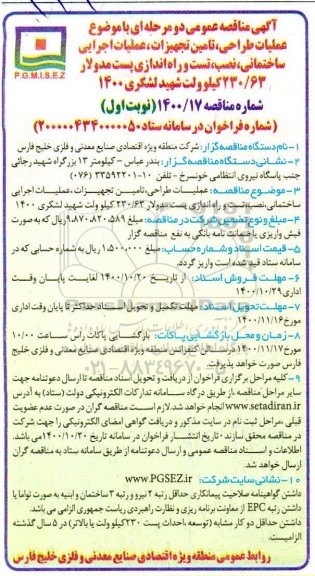 آگهی مناقصه عمومی دو مرحله ای با موضوع
عملیات طراحی، تامین تجهیزات، عملیات اجرایی
ساختمانی، نصب، تست و راه اندازی پست مدولار
۲۳۰/۶۳ کیلو ولت شهید لشکری ۱۴۰۰
P.G.M.I.S.E.Z
شماره مناقصه ۱۴۰۰/۱۷ (نوبت اول)
(شماره فراخوان در سامانه ستاد ۲۰۰۰۰۰۴۳۴۰۰۰۰۰۵۰)
۱- نام دستگاه مناقصه گزار: شرکت منطقه ویژه اقتصادی صنایع معدنی و فلزی خلیج فارس
۲- نشانی دستگاه مناقصه گزار: بندرعباس - کیلومتر ۱۳ بزرگراه شهید رجائی
جنب پاسگاه نیروی انتظامی خونسرخ - تلفن ۱۰-۳۳۵۹۲۲۰۱ (۰۷۶)
۳- موضوع مناقصه: عملیات طراحی، تامین تجهیزات، عملیات اجرایی
ساختمانی، نصب، تست و راه اندازی پست مدولار ۲۳۰/۶۳ کیلو ولت شهید لشکری ۱۴۰۰
۴- مبلغ و نوع تضمین شرکت در مناقصه: مبلغ ۹،۸۷۰،۸۲۰،۵۸۹ ریال که به صورت
فیش واریزی یا ضمانت نامه بانکی به نفع مناقصه گزار
۵- قیمت اسناد و شماره حساب: مبلغ ۱،۵۰۰،۰۰۰ ریال به شماره حسابی که در
سامانه ستاد قید شده است واریز گردد.
۶- مهلت فروش اسناد: از تاریخ ۱۴۰۰/۱۰/۲۰ لغایت پایان وقت
اداری ۱۴۰۰/۱۰/۲۹
۷- مهلت تحویل اسناد: مهلت تکمیل و تحویل اسناد حداکثر تا پایان وقت اداری
مورخ ۱۴۰۰/۱۱/۱۶
۸- زمان و محل بازگشایی پاکات: بازگشایی پاکات راس ساعت ۱۰/۰۰
مورخ ۱۴۰۰/۱۱/۱۷ در سالن کنفرانس منطقه ویژه اقتصادی صنایع معدنی و فلزی خلیج
فارس صورت خواهد پذیرفت
۹- کلیه مراحل برگزاری فراخوان از دریافت و تحویل اسناد مناقصه تا ارسال دعوتنامه جهت
سایر مراحل مناقصه، از طریق درگاه سامانه تدارکات الکترونیکی دولت (ستاد) به آدرس
www.setadiran.ir انجام خواهد شد. لازم است مناقصه گران در صورت عدم عضویت
قبلی، مراحل ثبت نام در سایت مذکور و دریافت گواهی امضای الکترونیکی را جهت شرکت
در مناقصه محقق سازند. تاریخ انتشار فراخوان در سامانه تاریخ ۱۴۰۰/۱۰/۲۰ می باشد.
اطلاعات و اسناد مناقصه عمومی و ارسال دعوتنامه از طریق سامانه ستاد به مناقصه گران
ارسال خواهد شد.
۱۰- نشانی سایت شرکت: www.PGSEZ.ir
داشتن گواهینامه صلاحیت پیمانکاری حداقل رتبه ۲ نیرو و رتبه ۲ ساختمان و ابنیه به صورت توأما یا
داشتن رتبه EPC از معاونت برنامه ریزی و نظارت راهبردی ریاست جمهوری الزامی می باشد.
داشتن حداقل دو کار مشابه (توسعه / احداث پست ۲۳۰ کیلو ولت یا بالاتر) در ۵ سال گذشته
الزامیست.
روابط عمومی منطقه ویژه اقتصادی صنایع معدنی و فلزی خلیج فارس
۰۲۱-۸۸۳۴۹۶۷۰